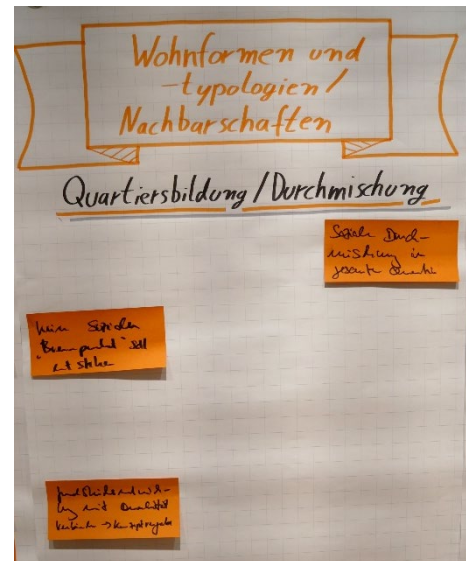 Wohnformen und
-typologien /
Nachbarschaften
Quartiersbildung / Durchmischung
Soziale Durch-
mischung im
gesamten Quartier
kein sozialer
"Brennpunkt" soll
entstehen
mit Qualität
verbinden → Konzeptvergabe